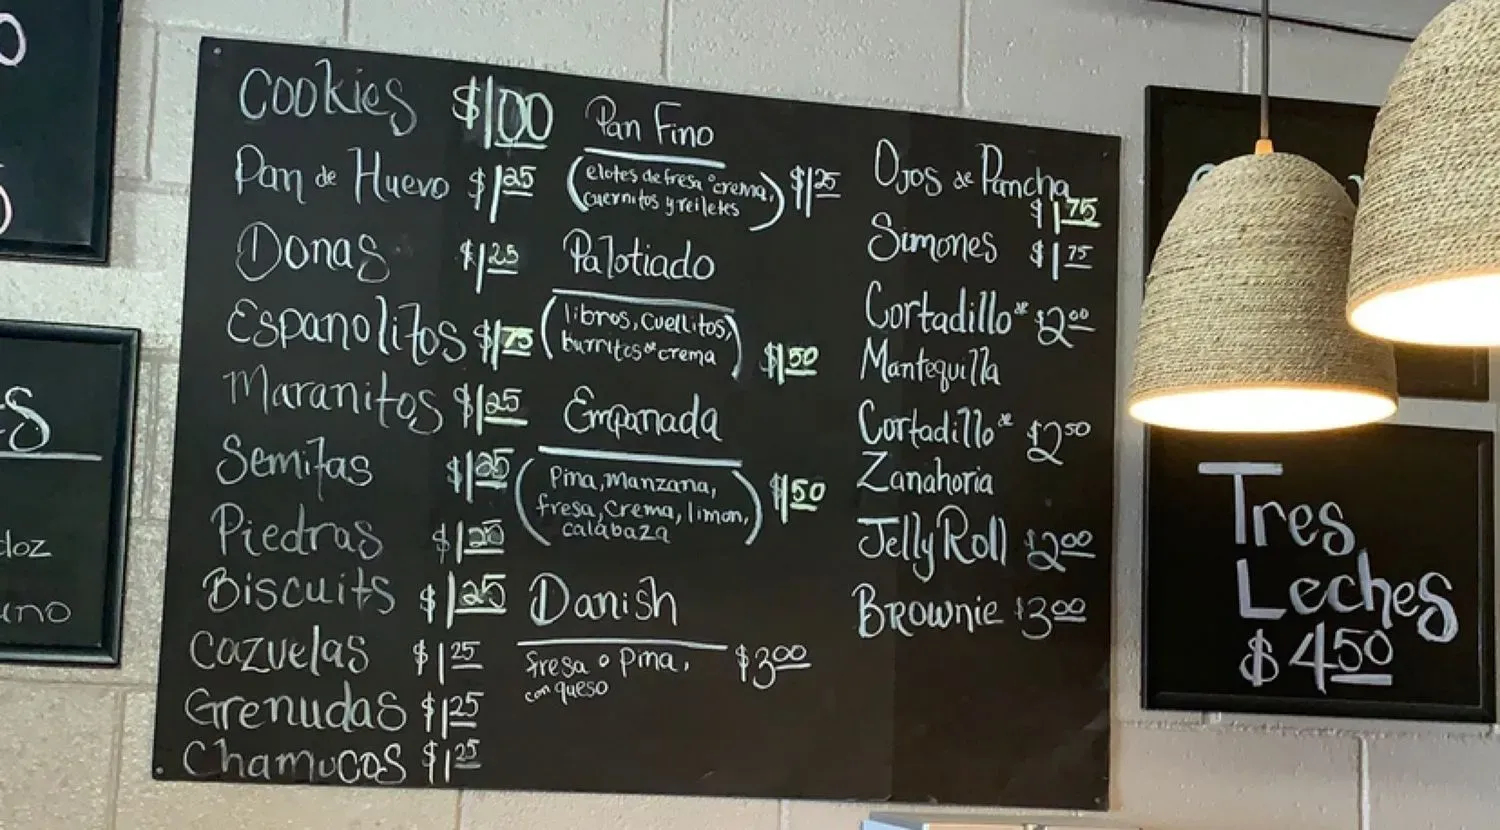 Cookies $1.00
Pan de Huevo $1.25
Donas $1.25
Espanolitos $1.75
Maranitos $1.25
Semitas $1.25
Piedras $1.25
Biscuits $1.25
Cazuelas $1.25
Grenudas $1.25
Chamucos $1.25
Pan Fino
(elotes de fresa o crema, $1.25
cuernitos y reiletes)
Palotiado
(libros, cuellitos,
burritos de crema) $1.50
Empanada
(Pina, manzana, $1.50
fresa, crema, limon,
calabaza)
Danish
fresa o pina, $3.00
con queso
Ojos de Pancha
$1.75
Simones $1.75
Cortadillo de $2.00
Mantequilla
Cortadillo de $2.50
Zanahoria
Jelly Roll $2.00
Brownie $3.00
Tres
Leches
$4.50